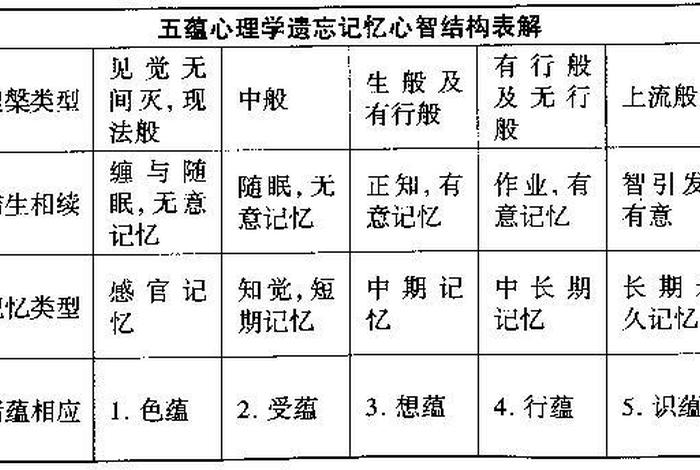 五蕴心理学遗忘记忆心智结构表解
槃类型
见觉无
间灭,现
法般
中般
生般及
有行般
有行般
及无行
般
上流般
生相续
缠与随
眠,无意
记忆
随眠,无
意记忆
正知,有
意记忆
作业,有
意记忆
智引发
有意
忆类型
感官记
忆
知觉,短
期记忆
中期记
忆
中长期
记忆
长期
久记忆
蕴相应
1. 色蕴
2. 受蕴
3. 想蕴
4. 行蕴
5. 识蕴